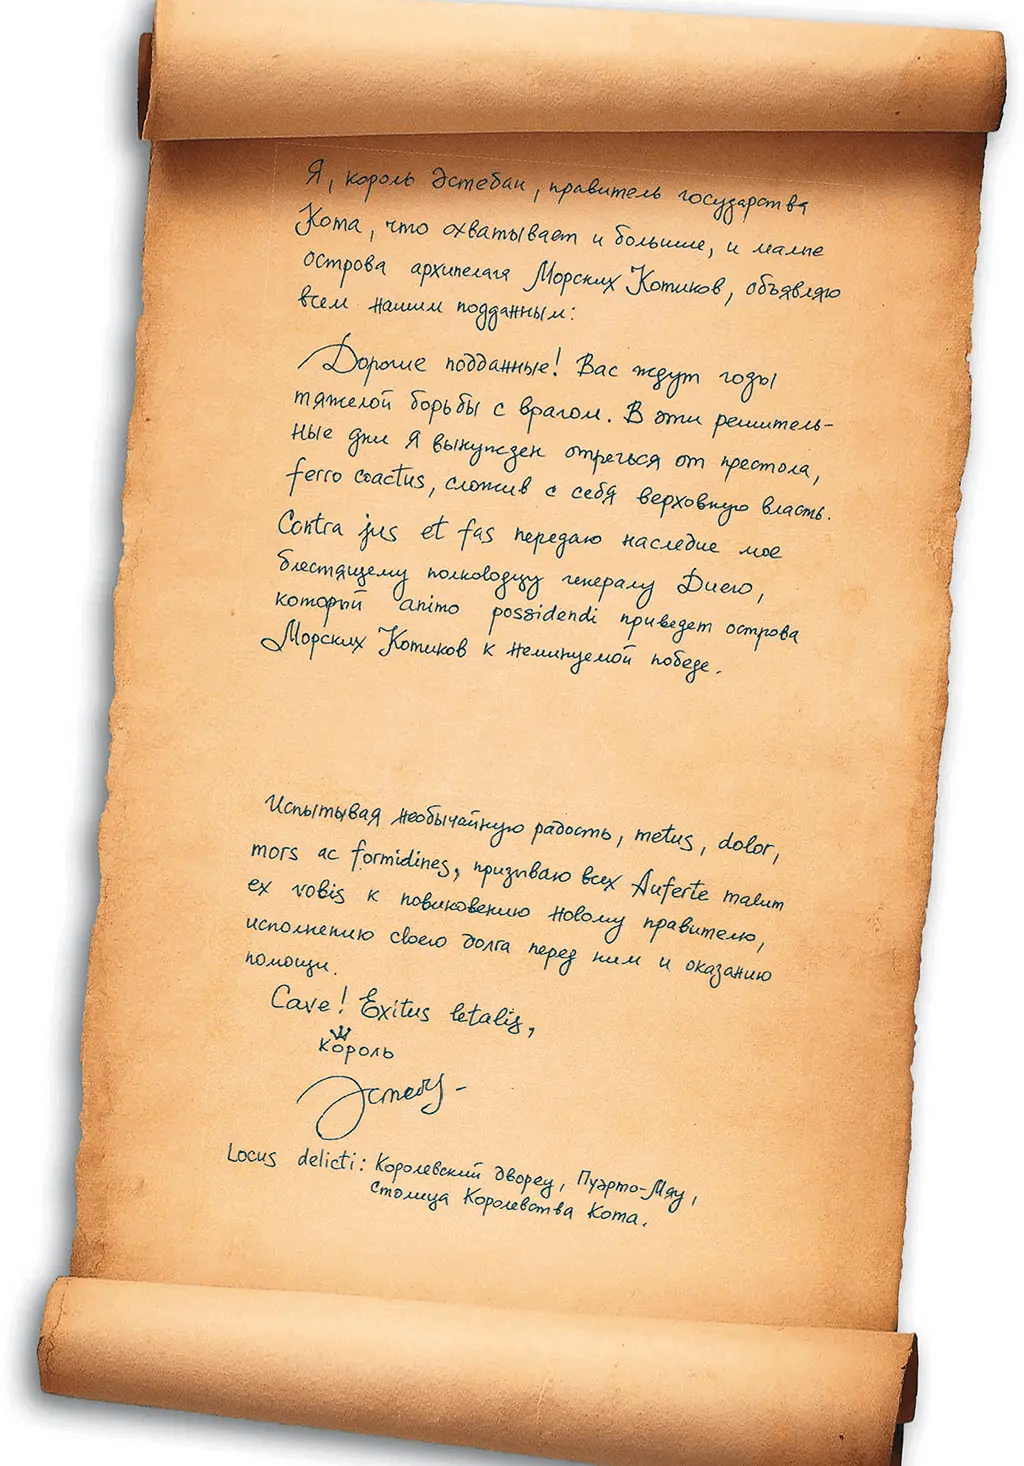 Я, король Эстебан, правитель государства
Кота, что охватывает и большие, и малые
острова архипелага Морских Котиков, объявляю
всем нашим подданным:
Дорогие подданные! Вас ждут годы
тяжелой борьбы с врагом. В эти решитель-
ные дни я вынужден отречься от престола,
ferro coactus, сложив с себя верховную власть.
Contra jus et fas передаю наследие мое
блестящему полководцу генералу Диего,
который animo possidendi приведет острова
Морских Котиков к неминуемой победе.
Испытывая необычайную радость, metus, dolor,
mors ac formidines, призываю всех Auferte malum
ex vobis к повиновению новому правителю,
исполнению своего долга перед ним и оказанию
помощи.
Cave! Exitus letalis,
король
Эстебан
Locus delicti: Королевский дворец, Пуэрто-Мяу,
столица Королевства Кота.